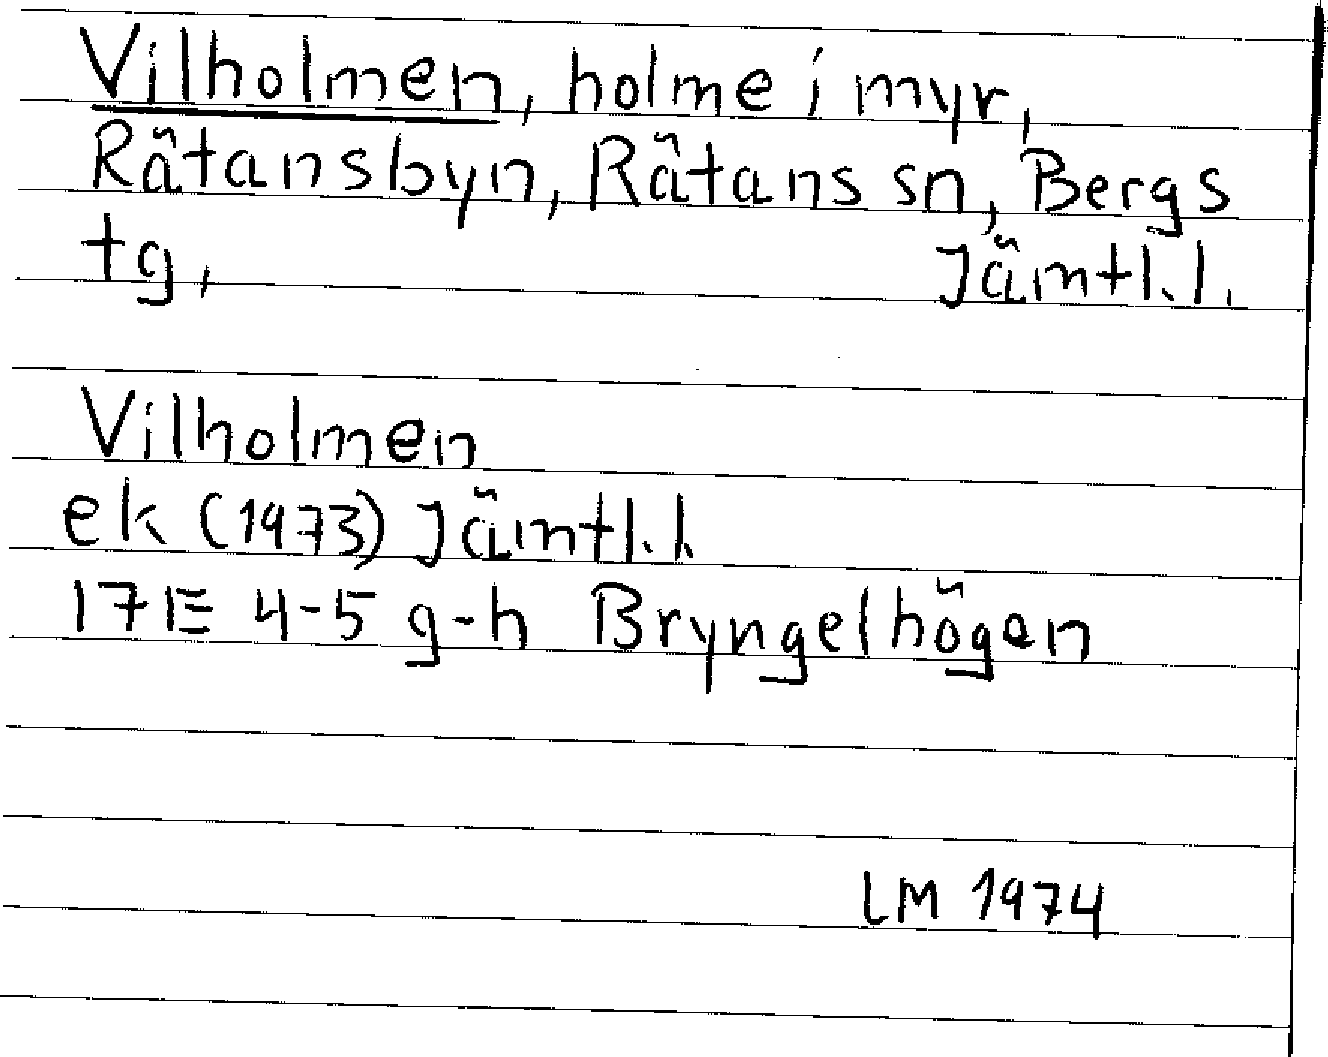 Vilholmen, holme i myr,
Rätansbyn, Rätans sn, Bergs
tg, Jämtl.l.
Vilholmen
ek (1973) Jämtl.l.
17E 4-5 g-h Bryngelhögen
LM 1974